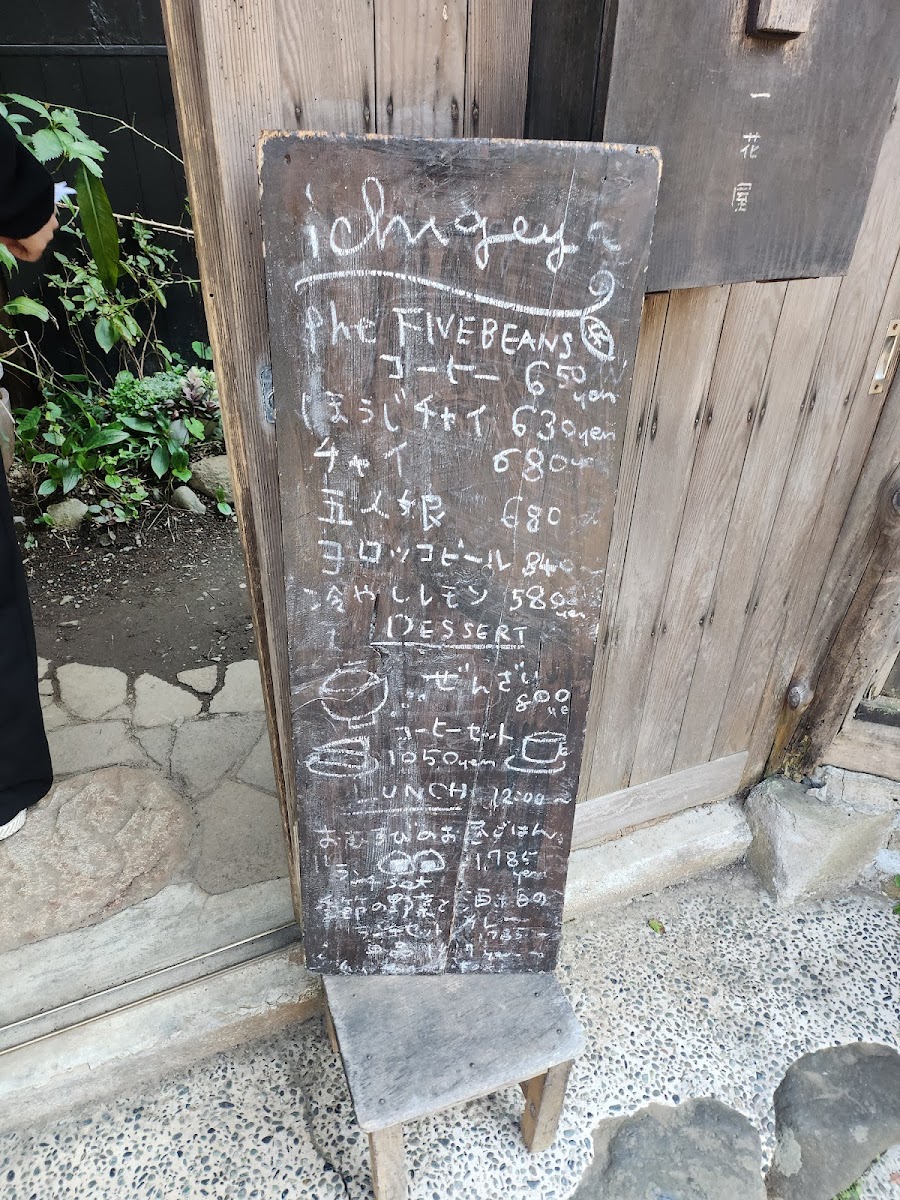 一花屋
ichigeya
the FIVEBEANS
コーヒー 650yen
ほうじチャイ 630yen
チャイ 680yen
五人娘 680
ヨロッコビール 840〜
冷やしレモン 580yen
DESSERT
ぜんざい
800
コーヒーセット
1050yen
LUNCH 12:00〜
おむすびのお昼ごはん。
1,785
yen
ランチ set
季節の野菜と
カレー
ランチセット 1,785